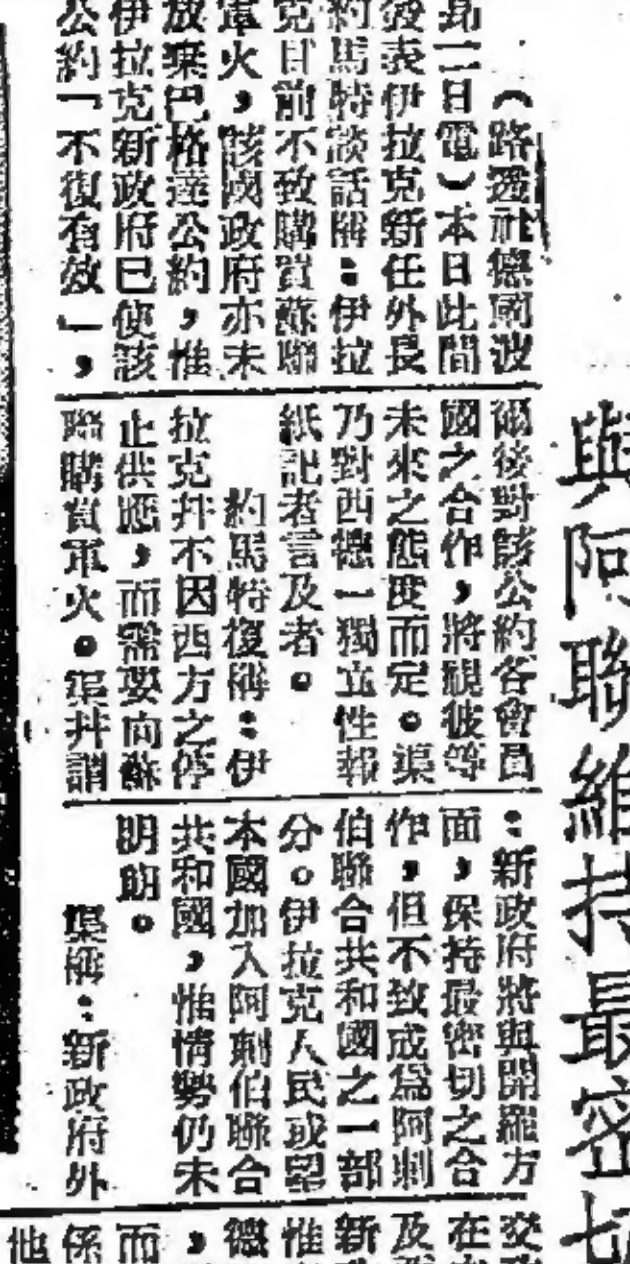 與阿聯維持最密切
（路透社德國波
昂二日電）本日此間
發表伊拉克新任外長
約馬特談話稱：伊拉
克目前不致購買蘇聯
軍火，該國政府亦未
放棄巴格達公約，惟
伊拉克新政府已使該
公約「不復有效」，
爾後對該公約各會員
國之合作，將視彼等
未來之態度而定。渠
乃對西德一獨立性報
紙記者言及者。
約馬特復稱：伊
拉克并不因西方之停
止供應，而需要向蘇
聯購買軍火。渠并謂
：新政府將與開羅方
面，保持最密切之合
作，但不致成爲阿剌
伯聯合共和國之一部
分。伊拉克人民或望
本國加入阿剌伯聯合
共和國，惟情勢仍未
明朗。
渠稱：新政府外
交
在
及
新
惟
德
，
而
係
他